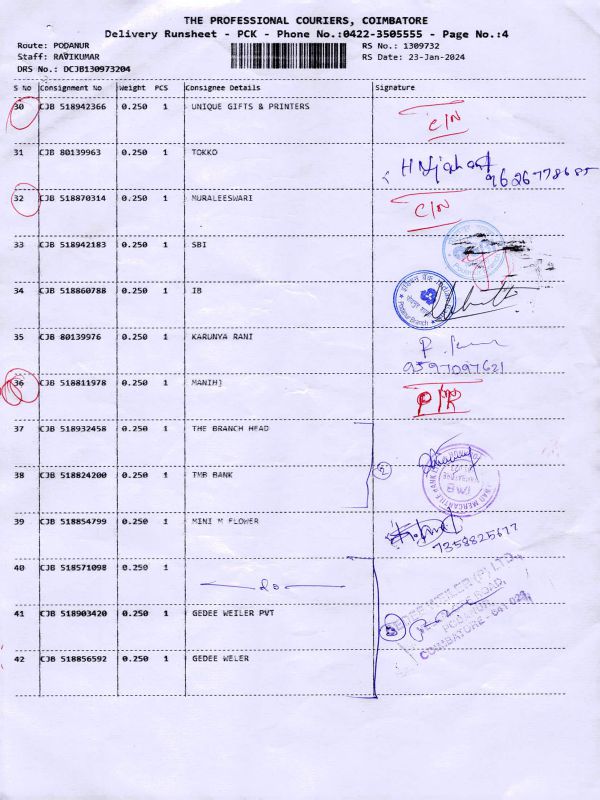 THE PROFESSIONAL COURIERS, COIMBATORE
Delivery Runsheet - PCK - Phone No.:0422-3505555 - Page No.:4
Route: PODANUR
RS No.: 1309732
Staff: RAVIKUMAR
RS Date: 23-Jan-2024
DRS No.: DCJB130973204
S No Consignment No Weight PCS Consignee Details Signature
30 CJB 518942366 0.250 1 UNIQUE GIFTS & PRINTERS C/N
31 CJB 80139963 0.250 1 TOKKO 9626778685
32 CJB 518870314 0.250 1 MURALEESWARI C/N
33 CJB 518942183 0.250 1 SBI
34 CJB 518860788 0.250 1 IB
Podanur Branch
35 CJB 80139976 0.250 1 KARUNYA RANI
9597097621
36 CJB 518811978 0.250 1 MANIHJ P/R
37 CJB 518932458 0.250 1 THE BRANCH HEAD
2
38 CJB 518824200 0.250 1 TMB BANK
MERCANTILE BANK
39 CJB 518854799 0.250 1 MINI M FLOWER
7358825677
40 CJB 518571098 0.250 1 do
GEDEE WEILER (P) LTD.,
41 CJB 518903420 0.250 1 GEDEE WEILER PVT 3
COIMBATORE - 641 023.
42 CJB 518856592 0.250 1 GEDEE WELER